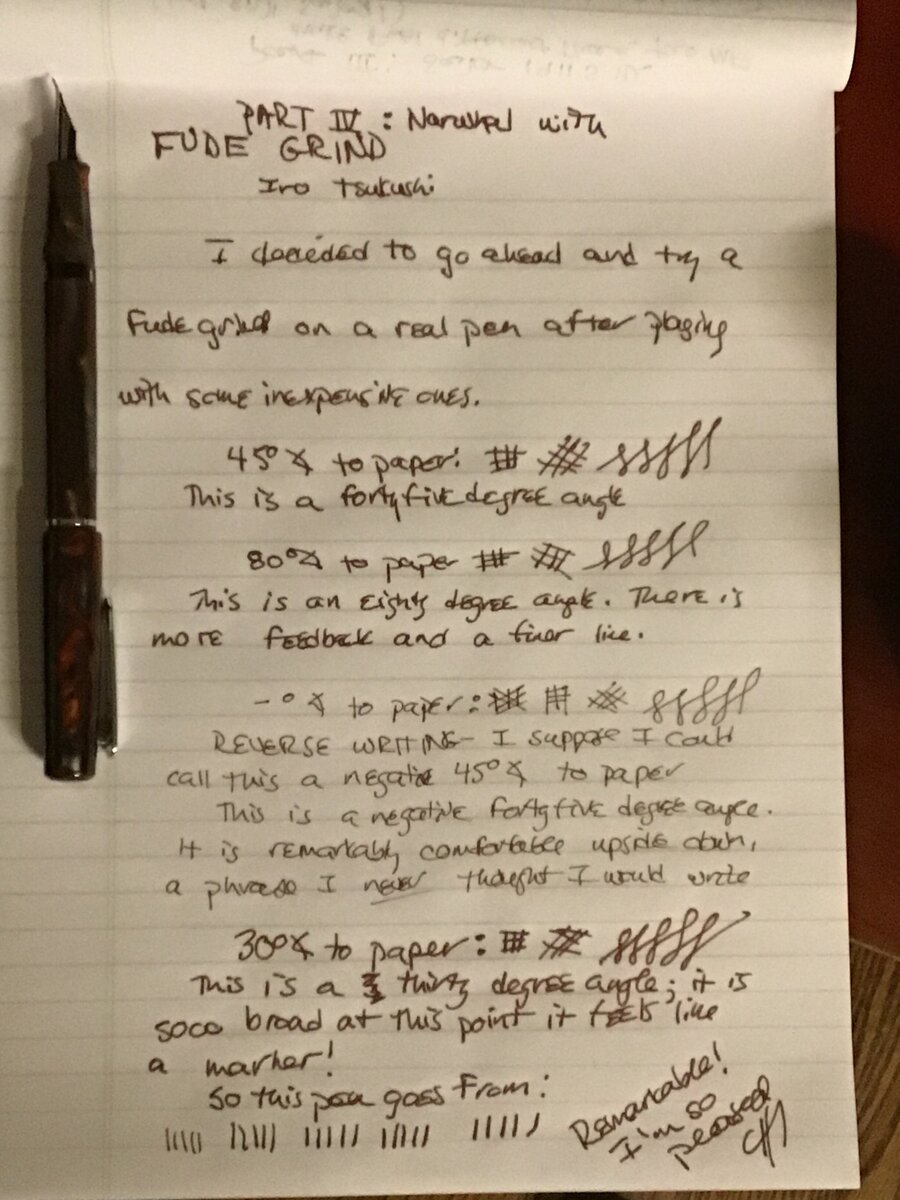 PART IV : Narwhal with
FUDE GRIND
Iro Tsukushi
I decided to go ahead and try a
Fude grind on a real pen after playing
with some inexpensive ones.
45°∡ to paper:
This is a forty five degree angle
80°∡ to paper
This is an eighty degree angle. There is
more feedback and a finer line.
-°∡ to paper:
REVERSE WRITING- I suppose I could
call this a negative 45°∡ to paper
This is a negative forty five degree angle.
It is remarkably comfortable upside down,
a phrase I never thought I would write
30°∡ to paper:
This is a thirty degree angle; it is
sooo broad at this point it feels like
a marker!
So this pen goes from:
Remarkable!
I'm so
pleased